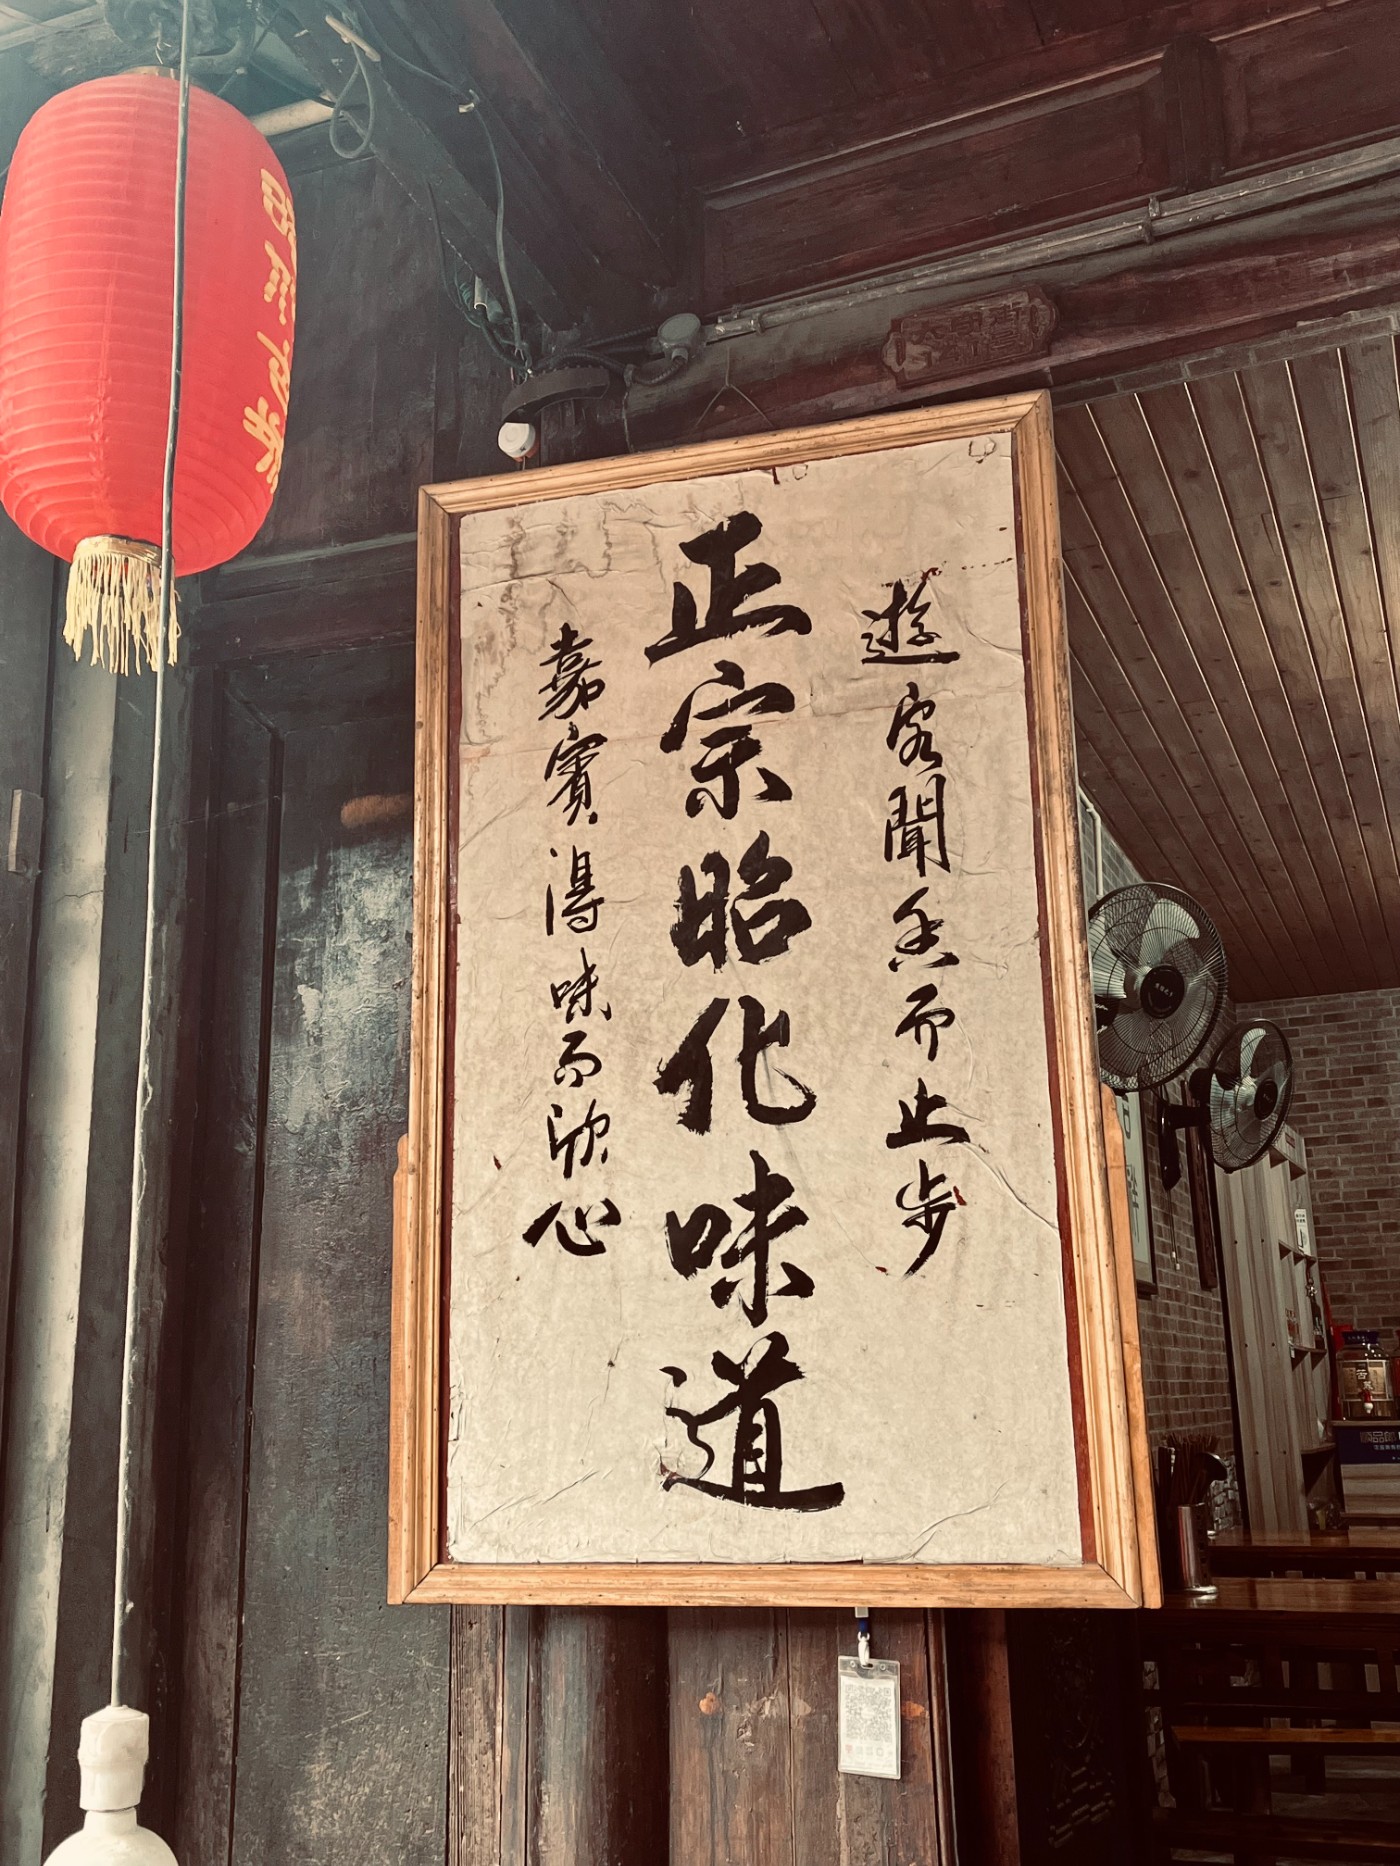 遊客聞香而止步
正宗昭化味道
嘉賓得味而欣心